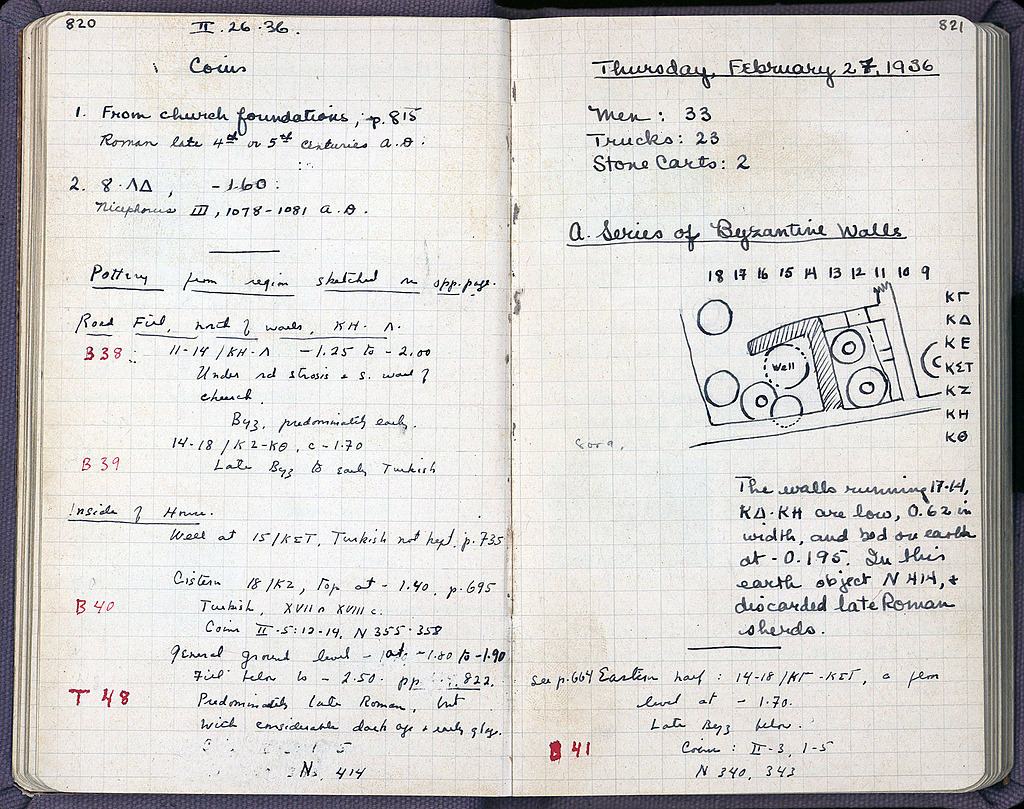 820
II . 26 . 36 .
Coins
1. From church foundations, p. 815
Roman late 4th or 5th centuries A.D.
2. 8 · ΛΔ , - 1.60 :
Nicephorus III, 1078-1081 A.D.
Pottery from region sketched on opp. page.
Road Fill, north of walls, KH - Λ.
B 38 : 11-14 / KH - Λ - 1.25 to - 2.00
Under rd strosis + s. wall of
church.
Byz, predominately early.
14-18 / KZ-KΘ, c - 1.70
B 39 Late Byz to early Turkish
Inside of House.
Well at 15/KΣT, Turkish not kept. p. 735
Cistern 18/KZ, top at - 1.40. p. 695
B 40 Turkish, XVII or XVIII c.
Coins II-5: 12-14, N 355-358
General ground level - at - 1.80 to - 1.90
Fill below to - 2.50. pp 822.
T 48 Predominately late Roman, but
with considerable dark age + early glaze.
N. 414
821
Thursday, February 27, 1936
Men : 33
Trucks: 23
Stone Carts: 2
A Series of Byzantine Walls
18 17 16 15 14 13 12 11 10 9
KΓ
KΔ
KE
KΣT
KZ
KH
KΘ
Well
8 or 9.
The walls running 17-14,
KΔ-KH are low, 0.62 in
width, and bed on earth
at - 0.195. In this
earth object N 414, +
discarded late Roman
sherds.
see p. 664 Eastern half : 14-18/KΓ-KΣT, a floor
level at - 1.70.
Late Byz below.
B 41 Coins : II-3, 1-5
N 340, 343